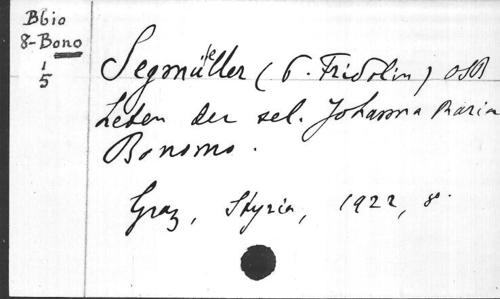 Bbio
8-Bono
1
5
Segmüller (P. Fridolin) OSB
Leben der sel. Johanna Maria
Bonomo.
Graz, Styria, 1922, 8.